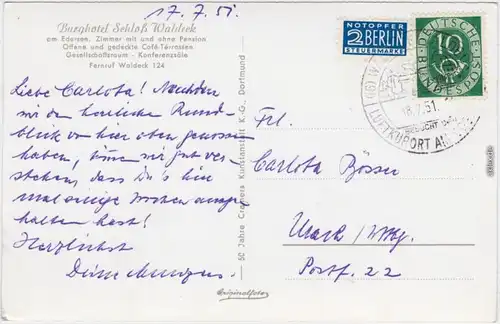 17.7.51.
Burghotel Schloß Waldeck
am Edersee, Zimmer mit und ohne Pension
Offene und gedeckte Café-Terrassen
Gesellschaftsraum - Konferenzsäle
Fernruf Waldeck 124
Liebe Carlota! Nachdem
wir den herrliche Rund-
blick von hier oben genossen
haben, können wir gut ver-
stehen, dass Du's hier
mal einige Wochen ausge-
halten hast!
Herzlichst
Deine
50 Jahre Cramers Kunstanstalt K.-G., Dortmund
Originalfoto
NOTOPFER
2 BERLIN
STEUERMARKE
DEUTSCHE
BUNDESPOST
10
18.7.51.
LUFTKURORT AM
Frl.
Carlota Rösser
Postf. 22